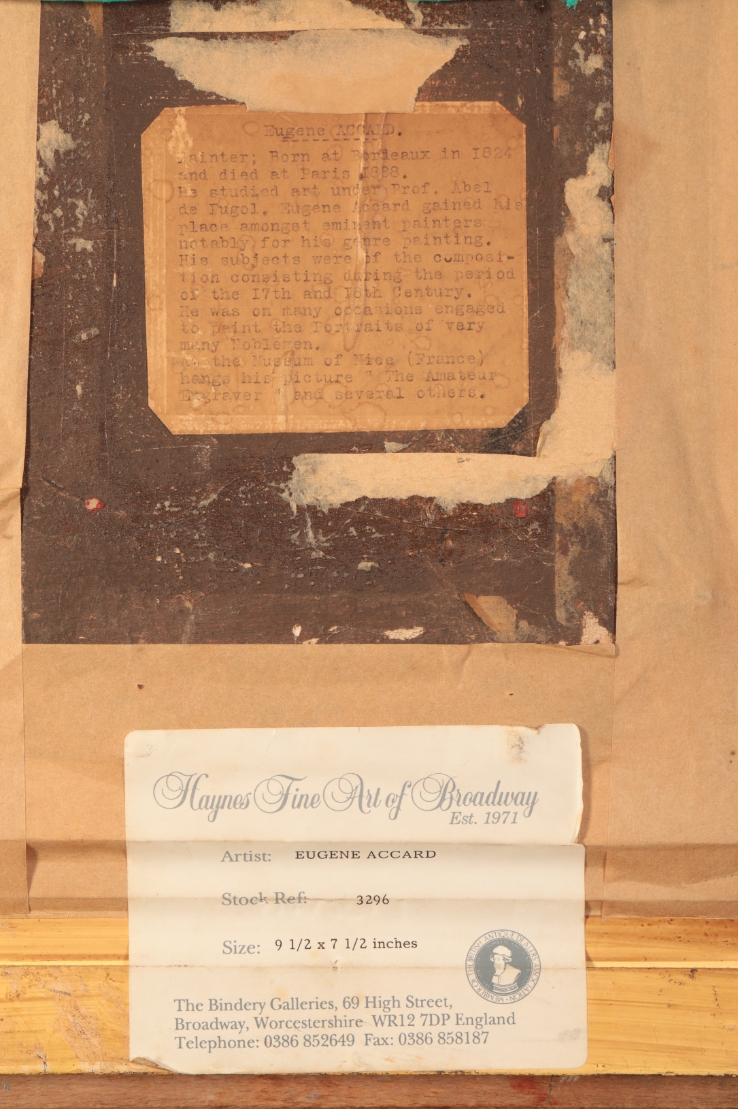 Eugene ACCARD.
Painter; Born at Bordeaux in 1824
and died at Paris 1888.
He studied art under Prof. Abel
de Pugol. Eugene Accard gained his
place amongst eminent painters
notably for his genre painting.
His subjects were of the composi-
tion consisting during the period
of the 17th and 18th Century.
He was on many occasions engaged
to paint the Portraits of very
many Noblemen.
At the Museum of Nice (France)
hangs his picture " The Amateur
Engraver " and several others.
Haynes Fine Art of Broadway
Est. 1971
Artist: EUGENE ACCARD
Stock Ref: 3296
Size: 9 1/2 x 7 1/2 inches
The Bindery Galleries, 69 High Street,
Broadway, Worcestershire WR12 7DP England
Telephone: 0386 852649 Fax: 0386 858187